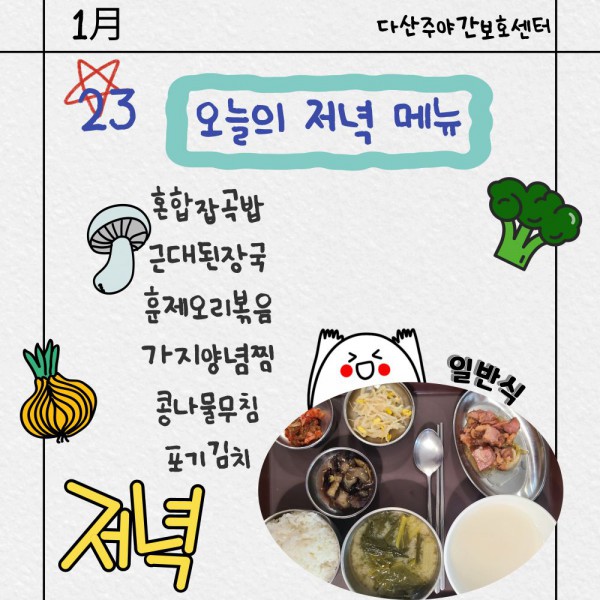 1月
다산주야간보호센터
23
오늘의 저녁 메뉴
혼합잡곡밥
근대된장국
훈제오리볶음
가지양념찜
콩나물무침
포기김치
일반식
저녁